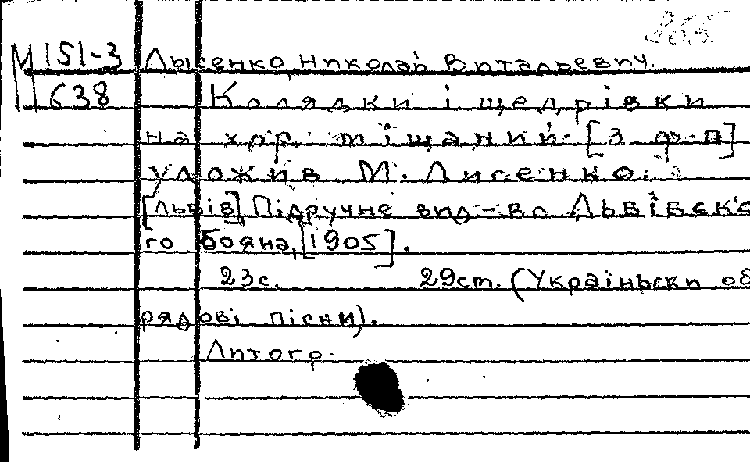 М 151-3 Лысенко, Николай Витальевич.
638 Колядки і щедрівки
на хор. міщаний. [З ф-п]
уложив М. Лисенко.
[Львів] Підручне вид-во Львівсько
го бояна, [1905].
23с. 29см. (Українськи об
рядові пісни).
Литогр.